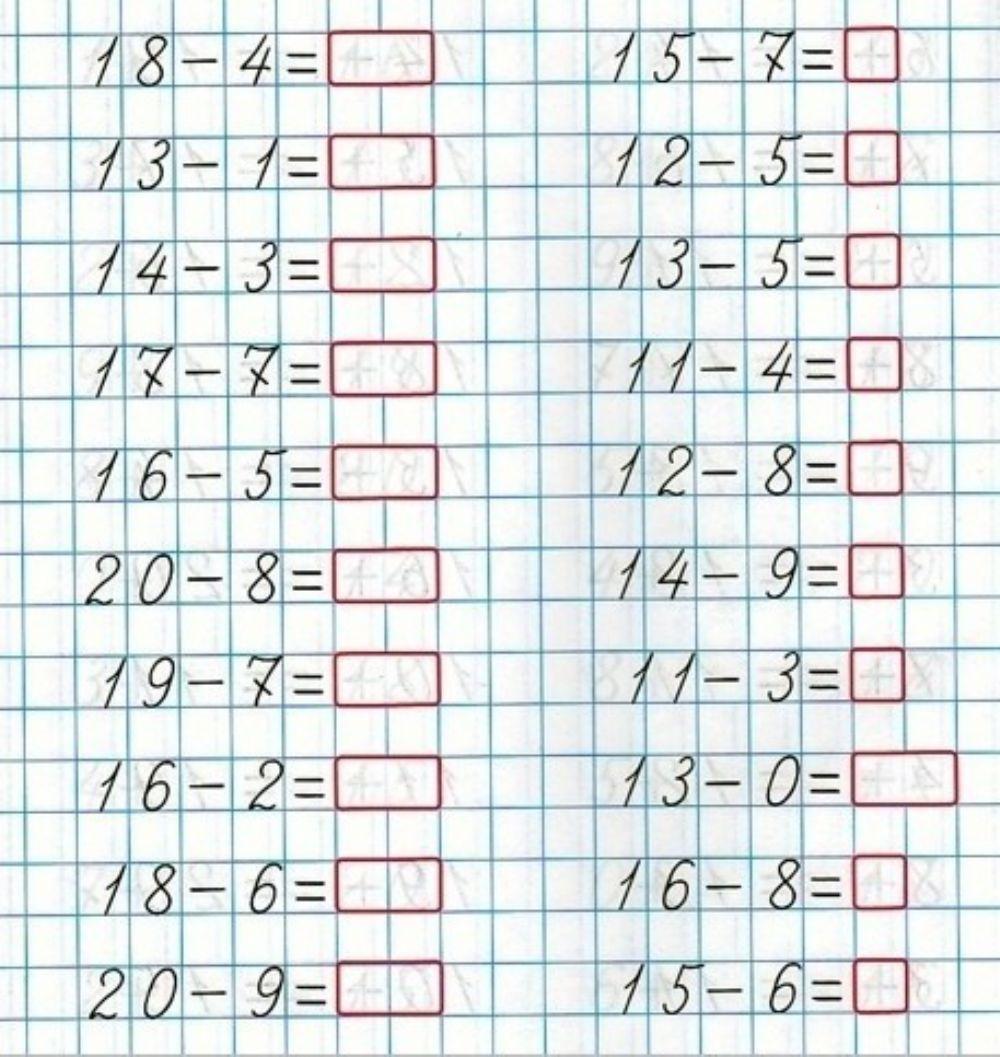 18-4= 15-7=
13-1= 12-5=
14-3= 13-5=
17-7= 11-4=
16-5= 12-8=
20-8= 14-9=
19-7= 11-3=
16-2= 13-0=
18-6= 16-8=
20-9= 15-6=